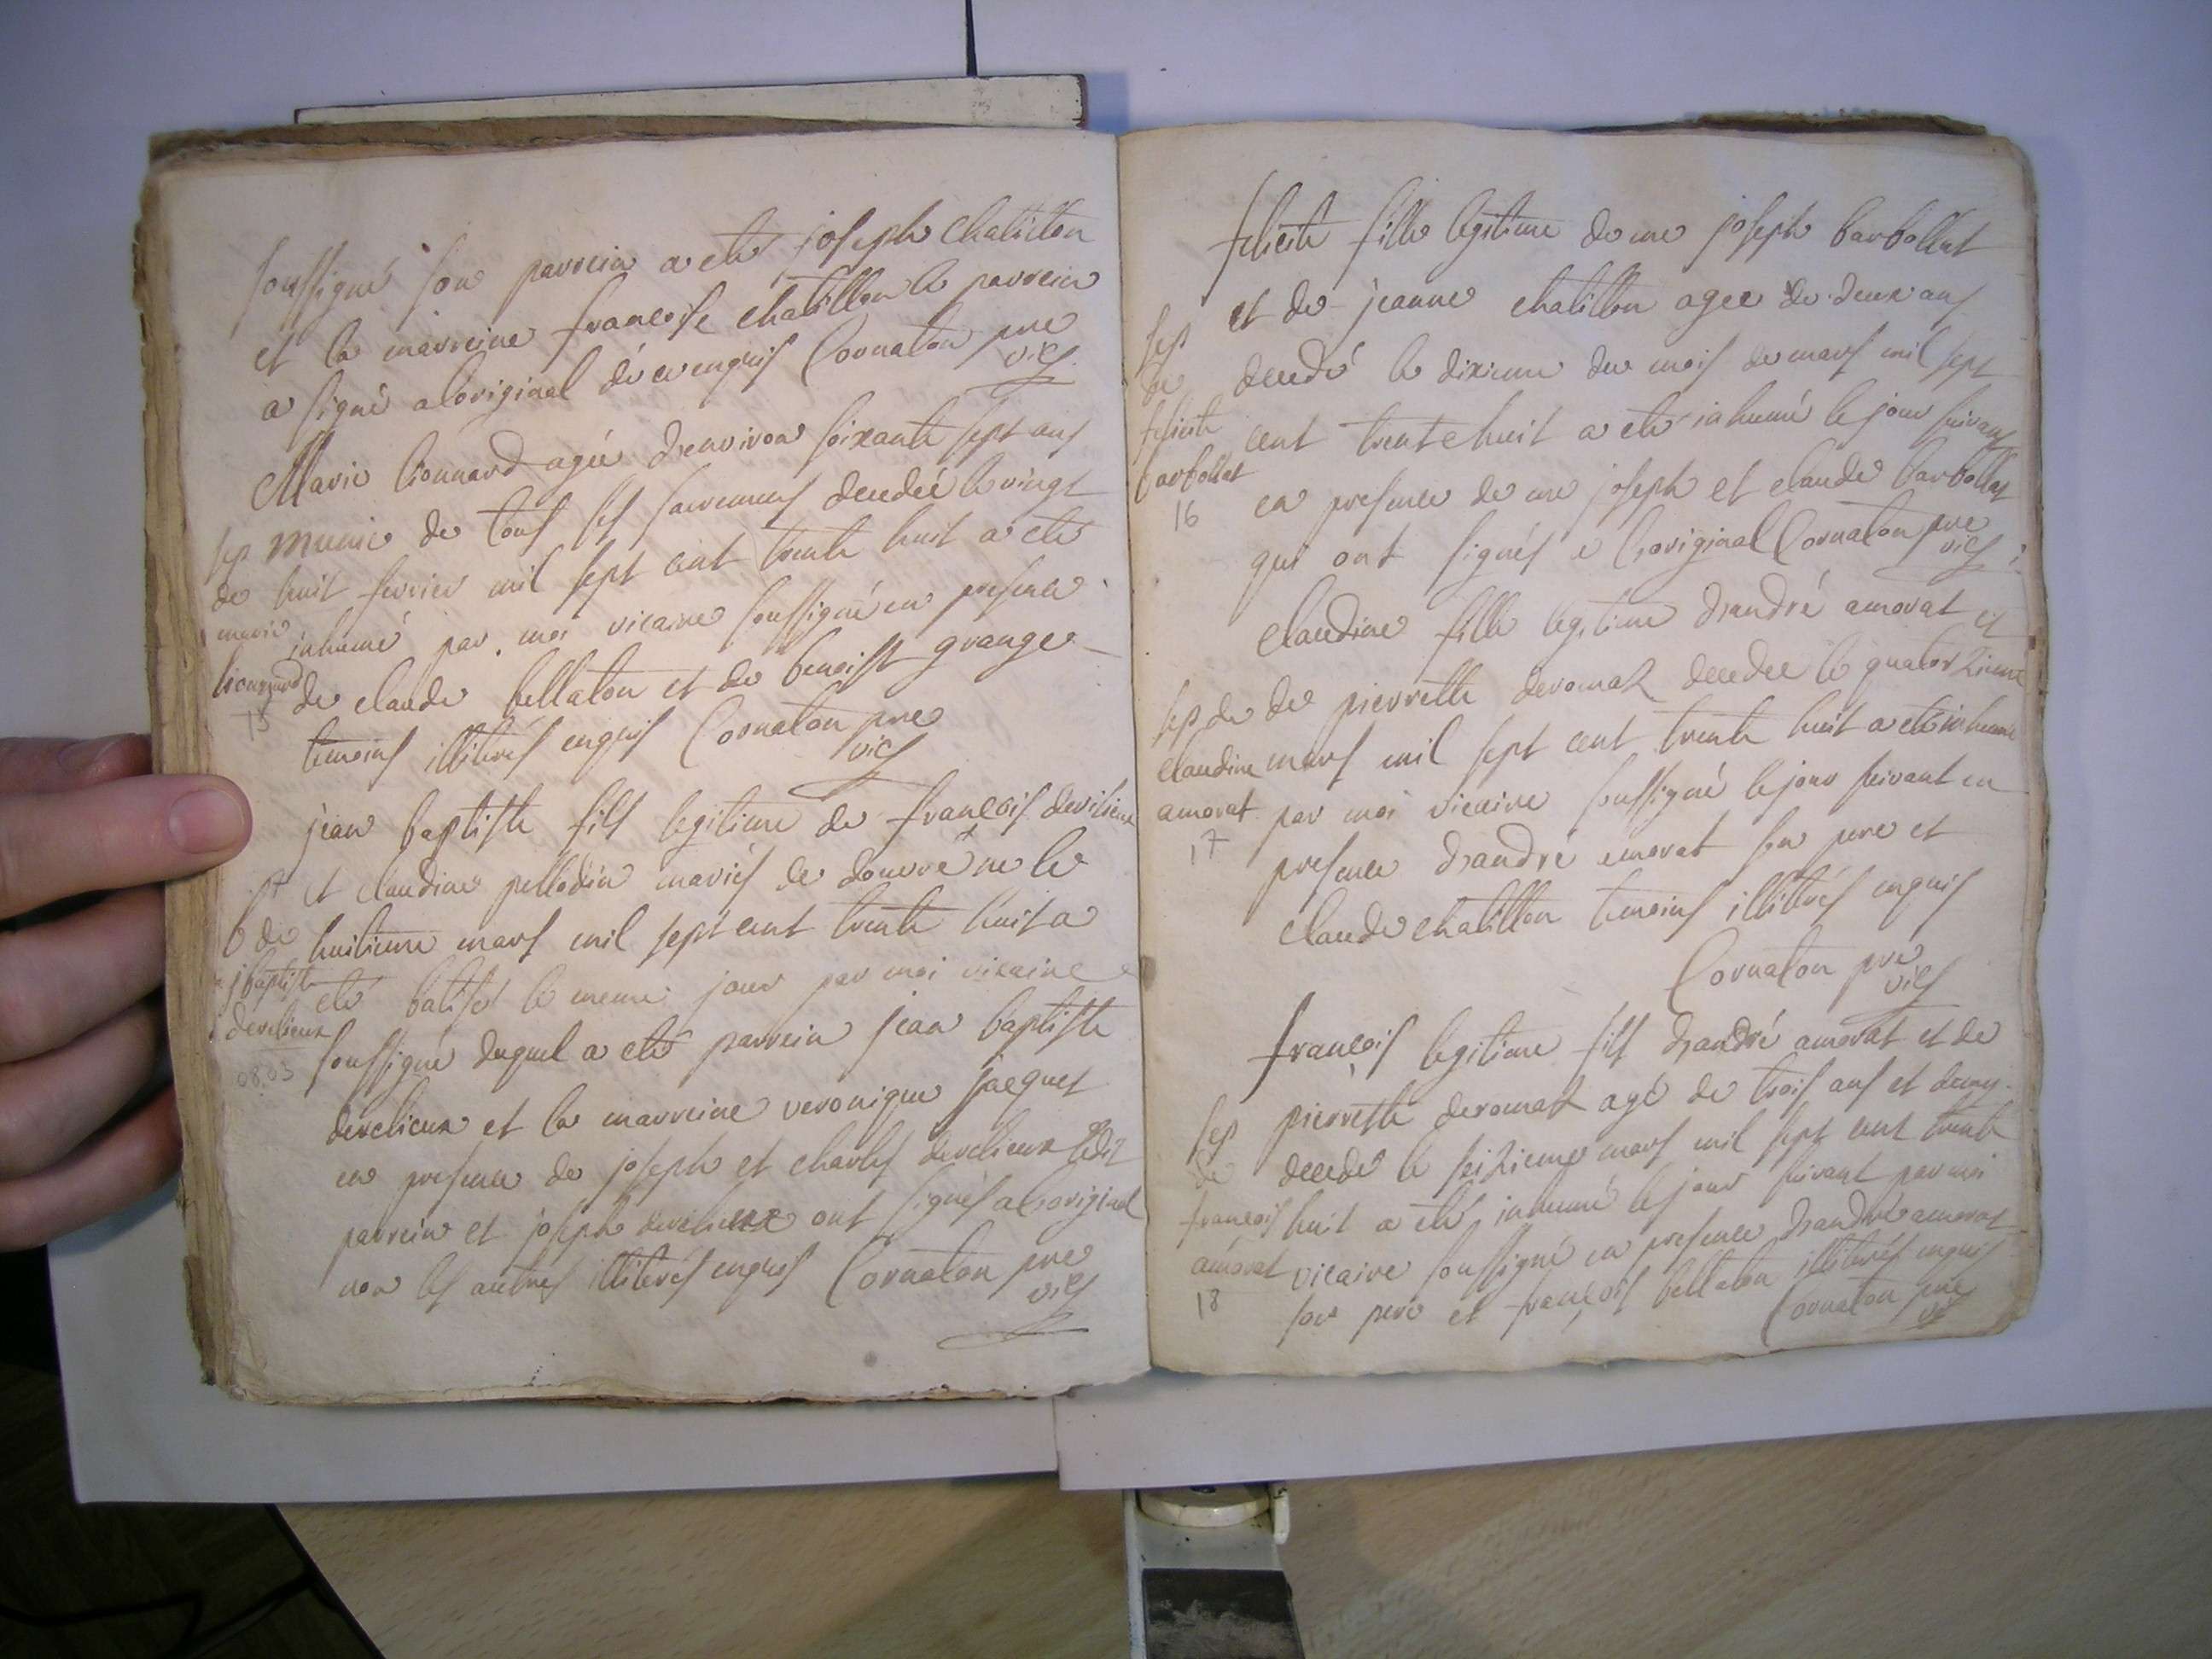 soussigné son parrein a eté joseph chatillon
et la marreine francoise chatillon le parrein
a signé a loriginal de ce enquis Cornaton pre
vics
Marie lionnard agée denviron soixante sept ans
sep munie de tous ses sacremens decedée le vingt
de huit fevrier mil sept cent trente huit a eté
marie inhumé par moi vicaire soussigné en presence
lionnard de claude bellaton et de benoist grange
15 temoins illiterés enquis Cornaton pre
vics
jean baptiste fils legitime de françois devilieux
et claudine pellodin mariés de douvre ne le
b de huitieme mars mil sept cent trente huit a
j baptiste eté batisé le meme jour par moi vicaire
derelieux soussigné duquel a eté parrein jean baptiste
08.03
derelieux et la marreine veronique jacquet
en presence de joseph et charles derelieux ledit
parrein et joseph derelieux ont signés a loriginal
non les autres illiterés enquis Cornaton pre
vics
felicite fille legitime de me joseph barbollat
et de jeanne chatillon agee de deux ans
sep
de decedé le dixieme du mois de mars mil sept
felicite cent trente huit a eté inhumé le jour suivant
barbollat en presence de me joseph et claude barbollat
16
qui ont signés a loriginal Cornaton pre
vics
claudine fille legitime dandré amorat et
sep de de pierrette deromaz decedee le quatorzieme
claudine mars mil sept cent trente huit a eté inhumé
amorat par moi vicaire soussigné le jour suivant en
17 presence dandré amorat son pere et
claude chatillon temoins illiterés enquis
Cornaton pre
vics
françois legitime fils dandré amorat et de
sep pierrette deromaz agé de trois ans et demy
de decedé le seizieme mars mil sept cent trente
francois huit a eté inhumé le jour suivant par moi
amorat vicaire soussigné en presence dandré amorat
18 son pere et françois bellaton illiterés enquis
Cornaton pre
vic